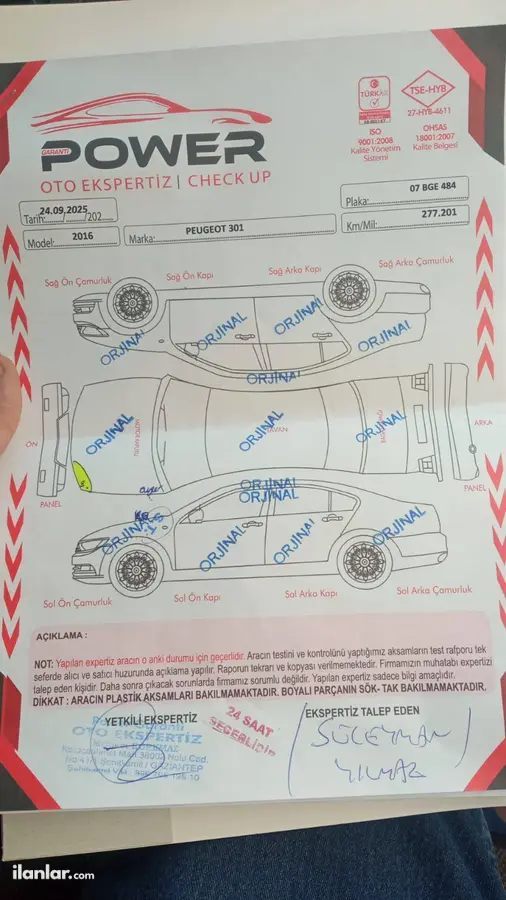 TÜRKAK
TSE-HYB
27-HYB-4611
ISO
9001:2008
Kalite Yönetim
Sistemi
OHSAS
18001:2007
Kalite Belgesi
GARANTİ
POWER
OTO EKSPERTİZ | CHECK UP
24.09.2025
Tarih:....../....../202....
Plaka: 07 BGE 484
Model: 2016
Marka: PEUGEOT 301
Km/Mil: 277.201
Sağ Ön Çamurluk
Sağ Ön Kapı
Sağ Arka Kapı
Sağ Arka Çamurluk
ORJİNAL
ORJİNAL
ORJİNAL
ORJİNAL
ORJİNAL
ÖN
ORJİNAL
ORJİNAL
TAVAN
ORJİNAL
ARKA
PANEL
PANEL
ORJİNAL
ORJİNAL
ORJİNAL
ORJİNAL
ORJİNAL
ORJİNAL
Sol Ön Çamurluk
Sol Ön Kapı
Sol Arka Kapı
Sol Arka Çamurluk
AÇIKLAMA :
NOT: Yapılan expertiz aracın o anki durumu için geçerlidir. Aracın testini ve kontrolünü yaptığımız aksamların test rafporu tek
seferde alıcı ve satıcı huzurunda açıklama yapılır. Raporun tekrarı ve kopyası verilmemektedir. Firmamızın muhatabı expertizi
talep eden kişidir. Daha sonra çıkacak sorunlarda firmamız sorumlu değildir. Yapılan expertiz sadece bilgi amaçlıdır.
DİKKAT : ARACIN PLASTİK AKSAMLARI BAKILMAMAKTADIR. BOYALI PARÇANIN SÖK- TAK BAKILMAMAKTADIR.
YETKİLİ EKSPERTİZ
24 SAAT
GEÇERLİDİR
EKSPERTİZ TALEP EDEN
OTO EKSPERTİZ
SÜLEYMAN
YILMAZ
ilanlar.com